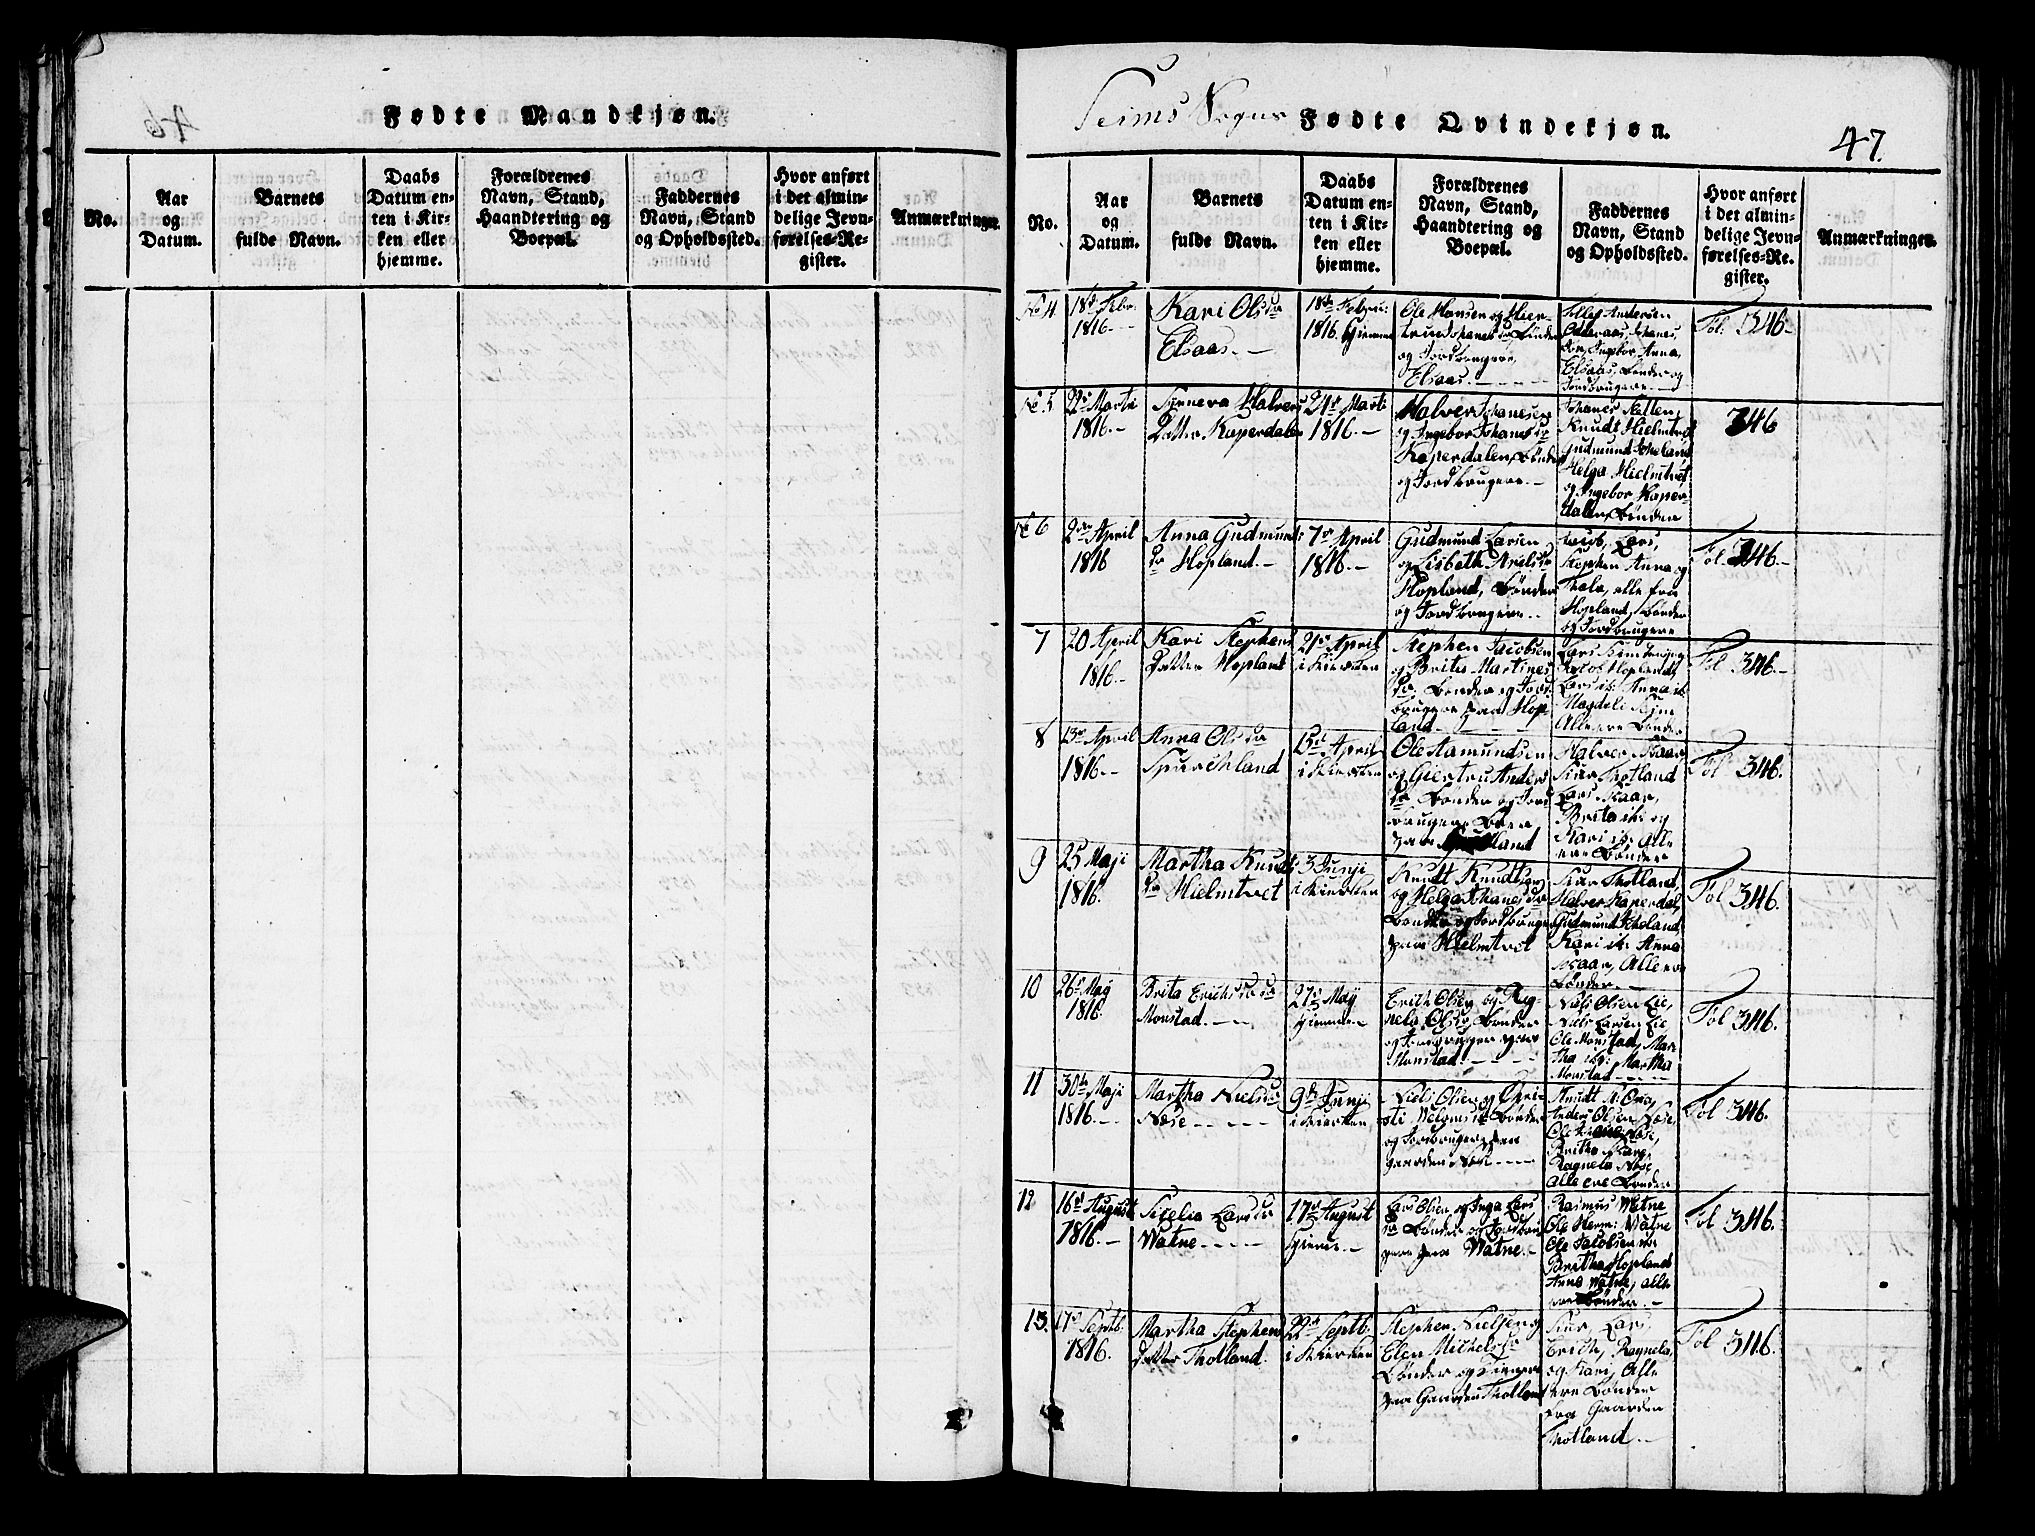 Fødte Mandkjøn.
No.
Aar
og
Datum.
Barnets
fulde Navn.
Daabs
Datum en-
ten i Kir-
ken eller
hjemme.
Forældrenes
Navn, Stand,
Haandtering og
Boepæl.
Faddernes
Navn, Stand
og Opholdssted.
Hvor anført
i det almin-
delige Jevn-
førelses-Re-
gister.
Anmærkninger.
Seims Sogn
Fødte Qvindekjøn.
47.
No.
Aar
og
Datum.
Barnets
fulde Navn.
Daabs
Datum en-
ten i Kir-
ken eller
hjemme.
Forældrenes
Navn, Stand,
Haandtering og
Boepæl.
Faddernes
Navn, Stand
og Opholdssted.
Hvor anført
i det almin-
delige Jevn-
førelses-Re-
gister.
Anmærkninger.
No 4
18de Febr.
1816.
Kari Olsdr
Elsaas.
18de Febru:
1816. Hiemme
Ole Hansen og Hier-
trud Johanesdr Bønder
og Jordbrugere,
Elsaas.
Tollef Andersen
Johanes
Ingebor, Anna,
Elsaas, Bønder og
Jordbrugere.
Fol. 346
No 5
22de Marti
1816.
Synneva Halvers
Datter Kaperdalen
24de Marti
1816.
Halver Johanesen
og Ingebor Johanesdr
Kaperdalen, Bønder
og Jordbrugere.
Johanes
Knudt Hielmtvet
Gudmund
Helga Hielmtvet
og Ingebor Kaper-
dalen, Bønder
346
No 6
2den April
1816
Anna Gudmunds
dr Hopland.
7de April
1816.
Gudmund Larsen
og Lisbeth Axelsdr
Hopland, Bønder
og Jordbrugere.
Jacob, Lars,
Stephen Anna og
Thala, alle fra
Hopland, Bønder
og Jordbrugere
Fol. 346.
7
20 April
1816.
Kari Stephens
Datter Hopland
21de April
i Kierken
Stephen Jacobsen
og Brita Martines
dr. Bønder og Jord
brugere paa Hop-
land.
Jacob Hopland,
Lars ib: Anna ib:
Magdeli
Alle ere Bønder
Fol 346.
8
13de April
1816.
Anna Olsdr
Spurchland
15de April
i Kierken
Ole Aamundsen
og Giertru Anders
dr Bønder og Jord
brugere
paa
Halver Kaar,
Siur Thotland
Lars Kaar,
Brita ib: og
Kari ib: Alle
ere Bønder
Fol 346.
9
25 Maji
1816.
Martha Knuds
dr Hielmtvet
3 Junji
i Kierken
Knudt Knudtsen
og Helga Johanesdr
Bønder og Jordbruger
paa Hielmtvet
Siur Thotland,
Halver Kaperdal,
Gudmund
Kari ib: Anna
Kaar, Alle ere
Bønder
Fol 346.
10
26de Maij
1816.
Brita Erichsdr
Monstad.
27de Maij
Hiemme
Erich Olsen og Rag-
nela Olsdr, Bønder
og Jordbruger paa
Monstad.
Niels Olsen Lie,
Niels Larsen Lie
Ole Monstad, Mar-
tha ib: Martha
Monstad
Fol 346.
11
30de Maji
1816.
Martha Nielsdr
Næse
9de Junji
i Kierken
Niels Olsen og Chri-
sti Wilemsdr Bønder
og Jordbrugere paa
gaarden Næse
Knudt
Anders Olsen Næse,
Ole Næse,
Britha
Ragnela Næse
alle ere Bønder
Fol 346.
12
16de August
1816.
Sicelia Larsdr
Watne
17de August
Hieme.
Lars Olsen og Inga Lars
dr Bønder og Jordbru-
gere paa Watne.
Rasmus Watne
Ole Herm: Watne
Ole Jacobsen
Britha Hopland
Anna Watne, alle
ere Bønder.
Fol 346.
13.
17de Septb.
1816.
Martha Stephens
datter Thotland.
22de Septb.
i Kierken
Stephen Nielsen og
Elen Michelsdr
Bønder og
paa Gaarden Thotland
Siur, Lars,
Erich, Ragnela,
og Kari, Alle
ere Bønder
fra Gaarden
Thotland.
Fol 346.